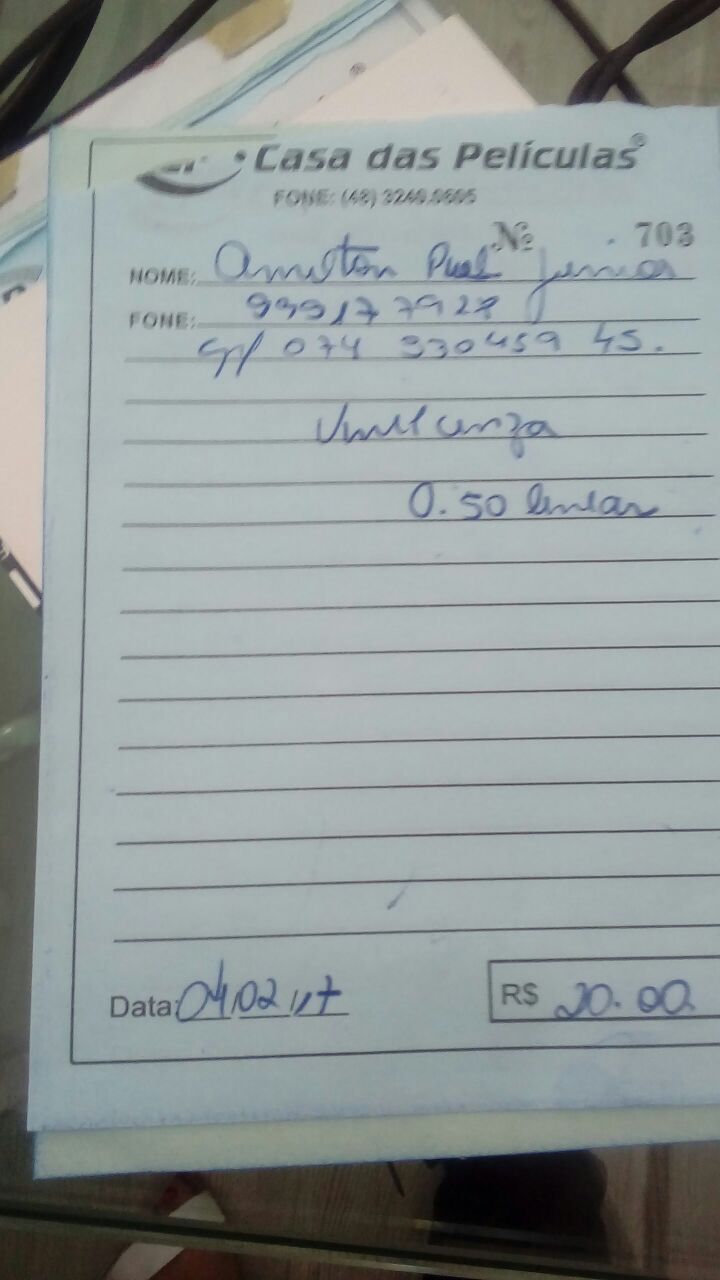 Casa das Películas®
FONE: (48) 3240.0605
Nº 703
NOME: Amilton Junior
FONE: 99917 7928
074 330459 45.
0.50 linear
Data: 04/02/17 R$ 20.00